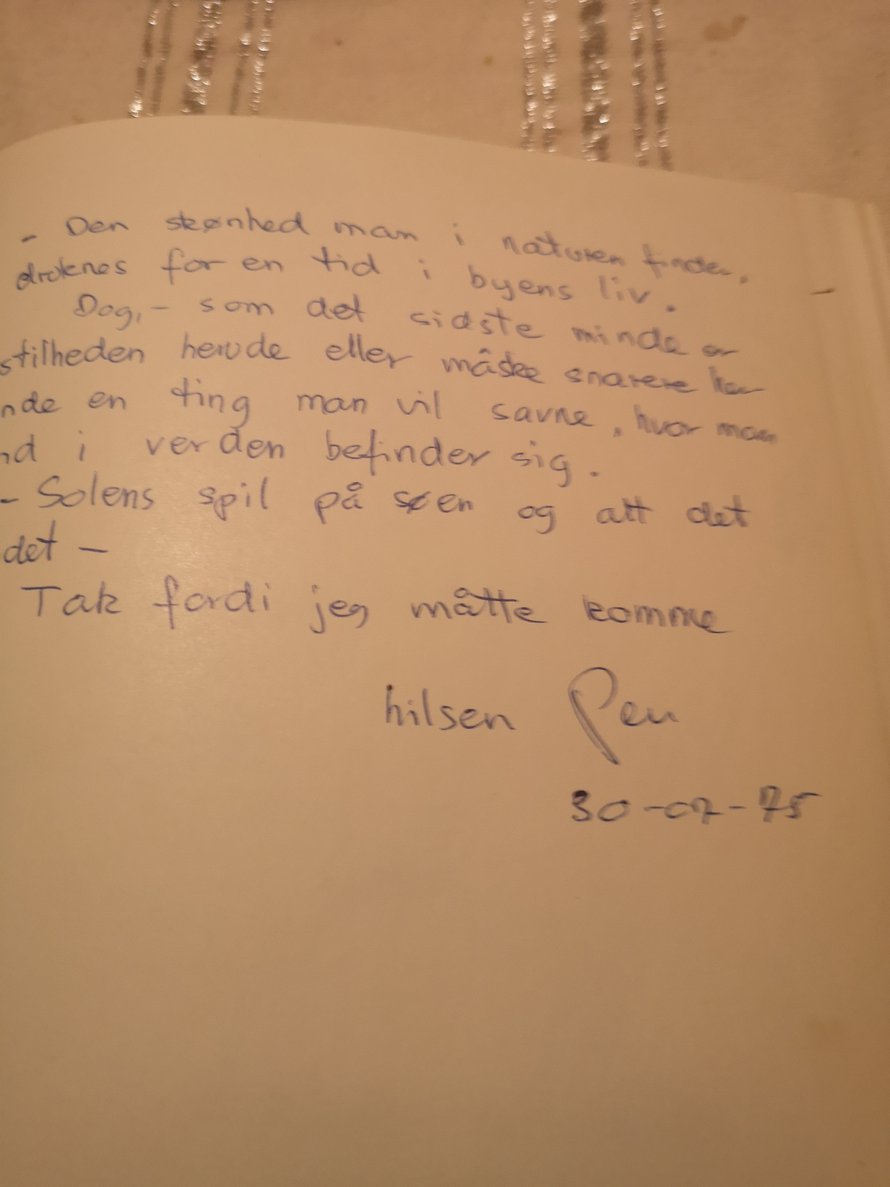 - Den skønhed man i naturen finder,
druknes for en tid i byens liv.
Dog, - som det sidste minde er
stilheden herude eller måske snarere her
nde en ting man vil savne, hvor man
nd i verden befinder sig.
- Solens spil på søen og alt det
det -
Tak fordi jeg måtte komme
hilsen
30-07-75